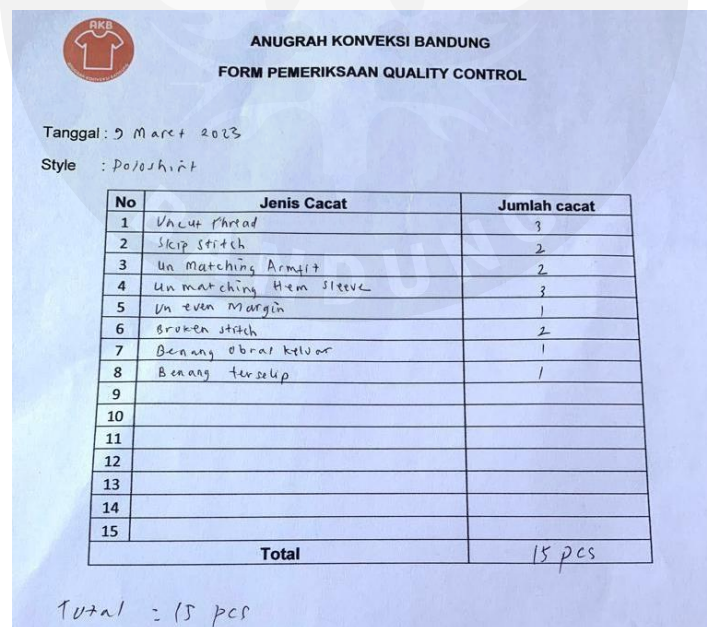 AKB
ANUGRAH KONVEKSI BANDUNG
FORM PEMERIKSAAN QUALITY CONTROL
Tanggal : 9 Maret 2023
Style : Poloshirt
No Jenis Cacat Jumlah cacat
1 Uncut thread 3
2 Skip stitch 2
3 Un matching Armfit 2
4 Un matching Hem sleeve 3
5 Un even Margin 1
6 Broken stitch 2
7 Benang obras keluar 1
8 Benang terselip 1
9
10
11
12
13
14
15
Total 15 pcs
Total : 15 pcs